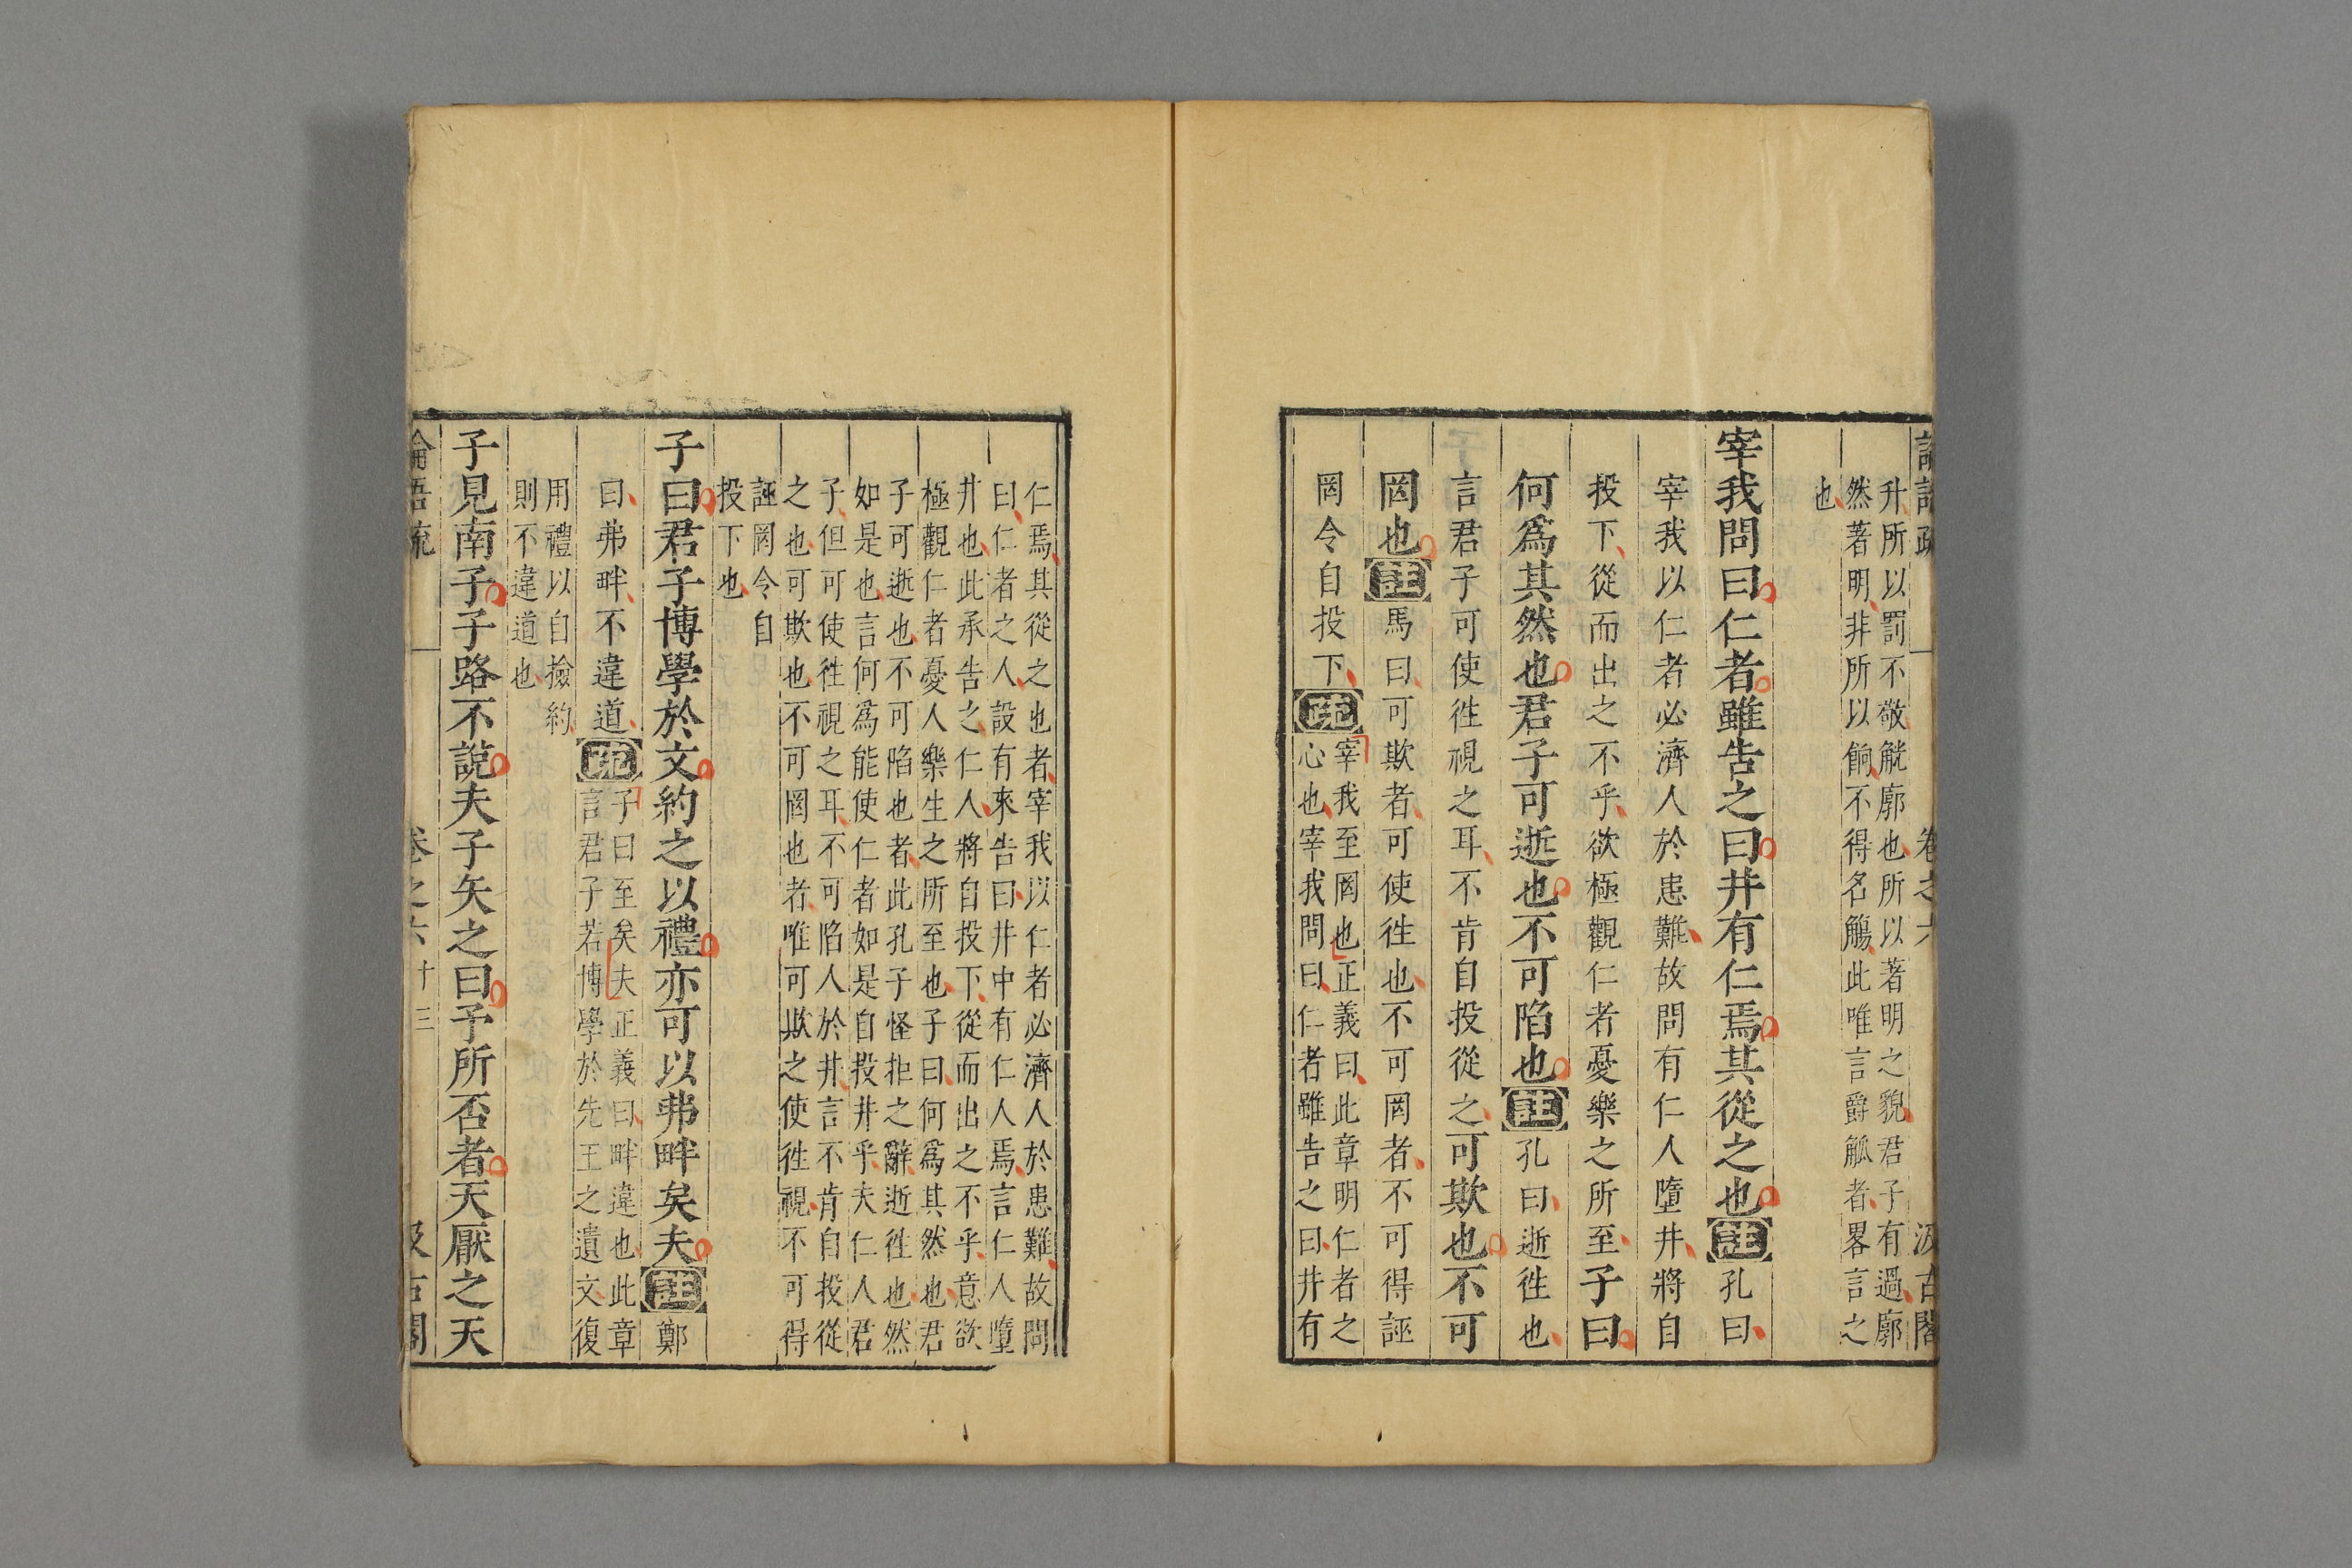 升所以罰不敬觥廓也所以著明之貌君子有過廓
然著明非所以餉不得名觴此唯言爵觚者畧言之
也
宰我問曰仁者雖告之曰井有仁焉其從之也註孔曰
宰我以仁者必濟人於患難故問有仁人墮井將自
投下從而出之不乎欲極觀仁者憂樂之所至子曰
何爲其然也君子可逝也不可陷也註孔曰逝徃也
言君子可使徃視之耳不肯自投從之可欺也不可
罔也註馬曰可欺者可使徃也不可罔者不可得誣
罔令自投下疏宰我至罔也正義曰此章明仁者之
心也宰我問曰仁者雖告之曰井有
仁焉其從之也者宰我以仁者必濟人於患難故問
曰仁者之人設有來告曰井中有仁人焉言仁人墮
井也此承告之仁人將自投下從而出之不乎意欲
極觀仁者憂人樂生之所至也子曰何爲其然也君
子可逝也不可陷也者此孔子怪拒之辭逝徃也然
如是也言何爲能使仁者如是自投井乎夫仁人君
子但可使徃視之耳不可陷人於井言不肯自投從
之也可欺也不可罔也者唯可欺之使徃視不可得
誣罔令自
投下也
子曰君子博學於文約之以禮亦可以弗畔矣夫註鄭
曰弗畔不違道疏子曰至矣夫正義曰畔違也此章
言君子若博學於先王之遺文復
用禮以自撿約
則不違道也
子見南子子路不說夫子矢之曰予所否者天厭之天